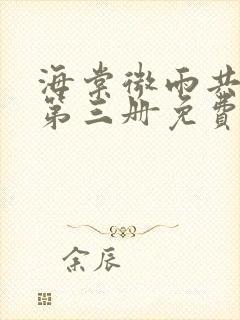 海棠微雨共
第三册免費
余辰